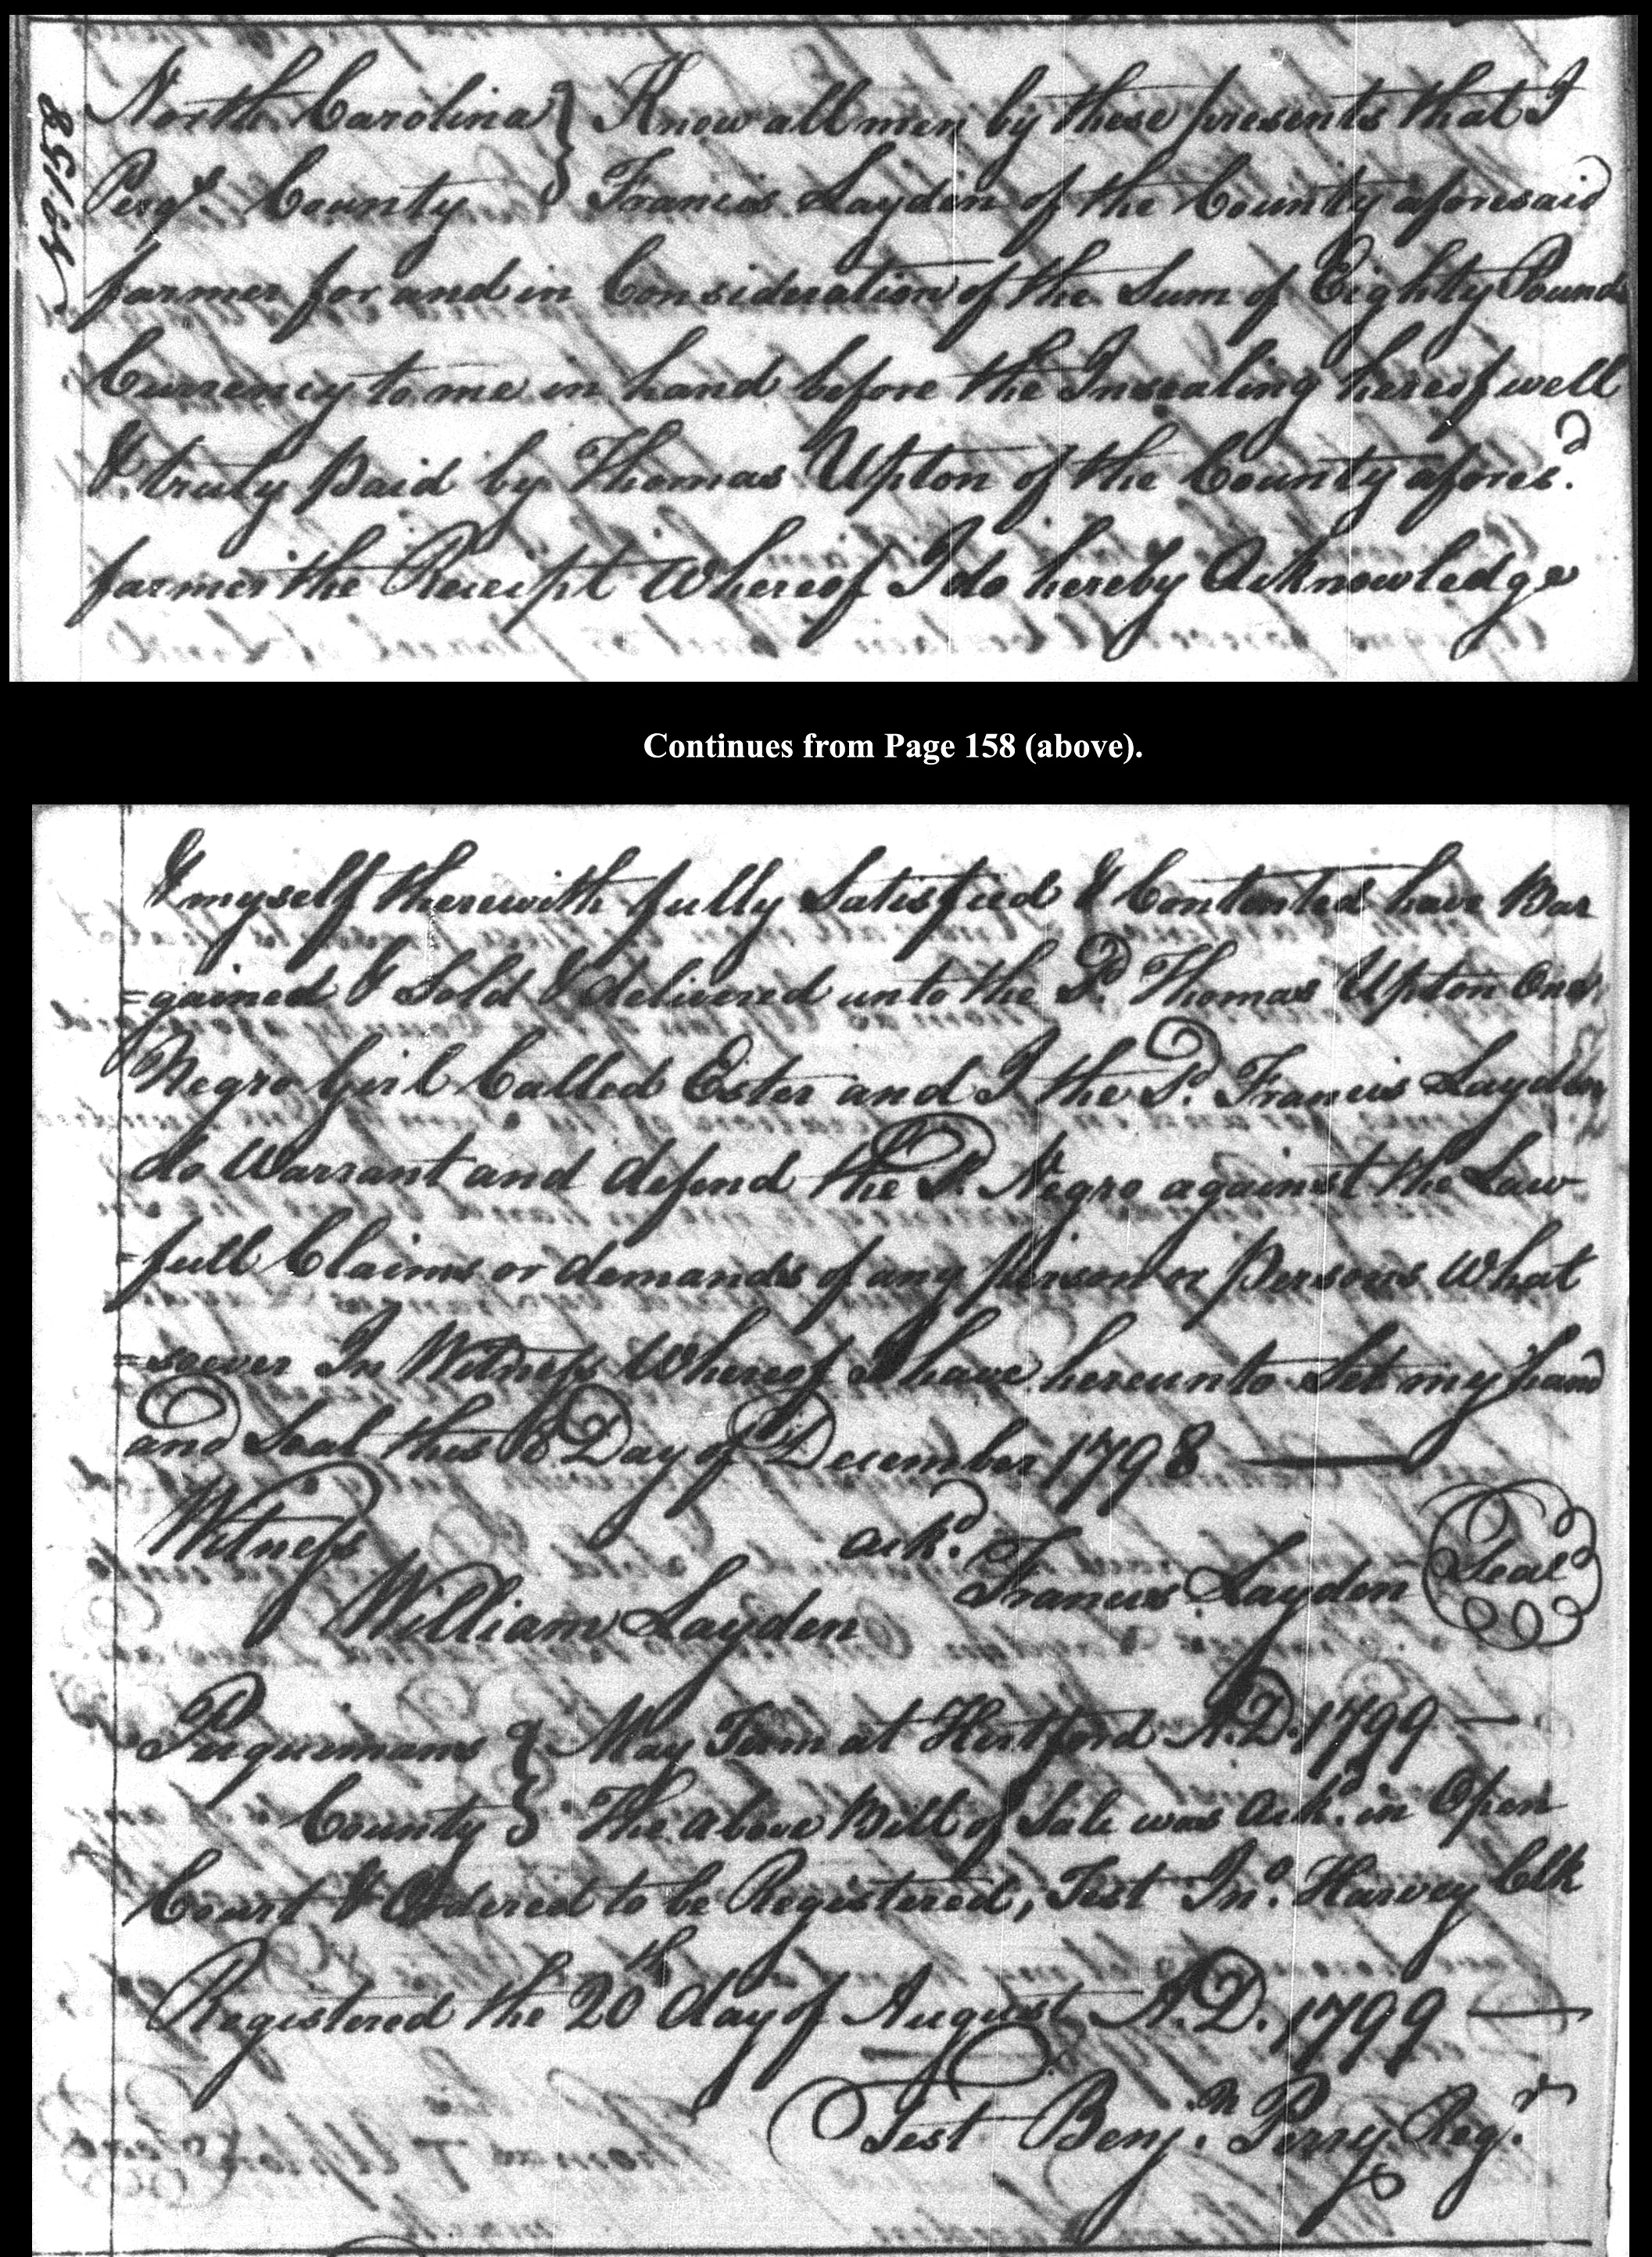 No. 158
North Carolina } Know all men by these presents that I
Perqs. County } Francis Layden of the County aforesaid
farmer for and in Consideration of the Sum of Eighty Pounds
Currency to me in hand before the Insealing hereof well
& truly paid by Thomas Upton of the County afores.d
farmer the Receipt Whereof I do hereby Acknowledge
Continues from Page 158 (above).
& myself therewith fully Satisfied & Contented have Bar
=gained & Sold & delivered unto the Sd. Thomas Upton One
Negro Girl Called Ester and I the Sd. Francis Layden
do Warrant and defend the Sd. Negro against the Law
=full Claims or demands of any person or persons What
=soever In Witness Whereof I have hereunto Set my hand
and Seal this 8 Day of December 1798
Witness ack.d Francis Layden Seal
William Layden
Perquimans } May Term at Hertford A.D. 1799
County } The above Bill of Sale was Ack.d in Open
Court & Ordered to be Registered, Test Jno. Harvey Clk
Registered the 20th day of August A.D. 1799
Test Benj.n Perry Reg.r